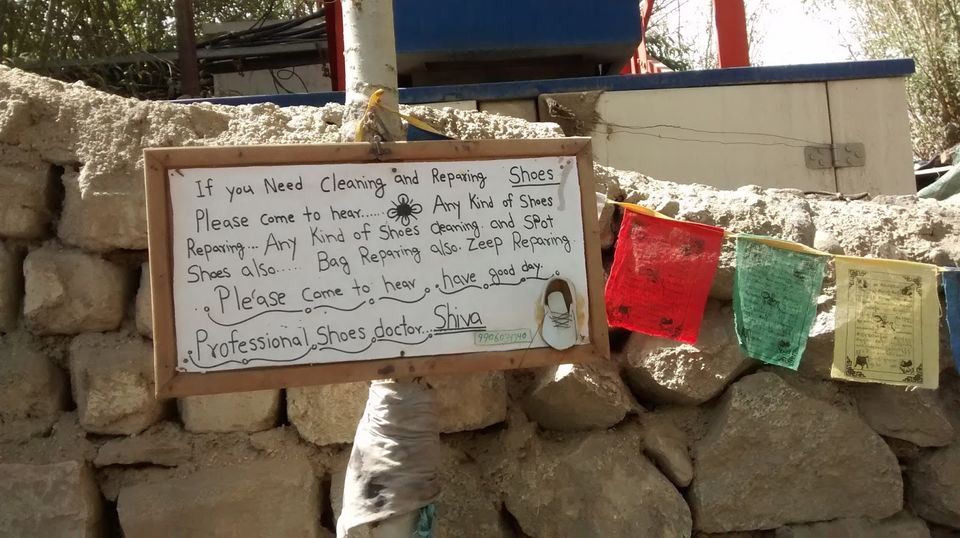 If you Need Cleaning and Reparing Shoes
Please come to hear...... Any Kind of Shoes
Reparing... Any Kind of Shoes cleaning and SPot
Shoes also..... Bag Reparing also. Zeep Reparing
Please Come to hear have good day...
Professional Shoes doctor... Shiva